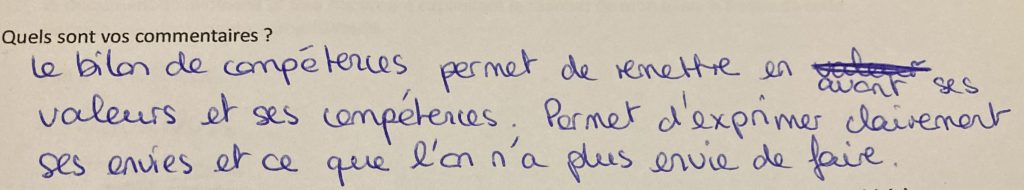 Quels sont vos commentaires ?
Le bilan de compétences permet de remettre en avant ses
valeurs et ses compétences. Permet d'exprimer clairement
ses envies et ce que l'on n'a plus envie de faire.